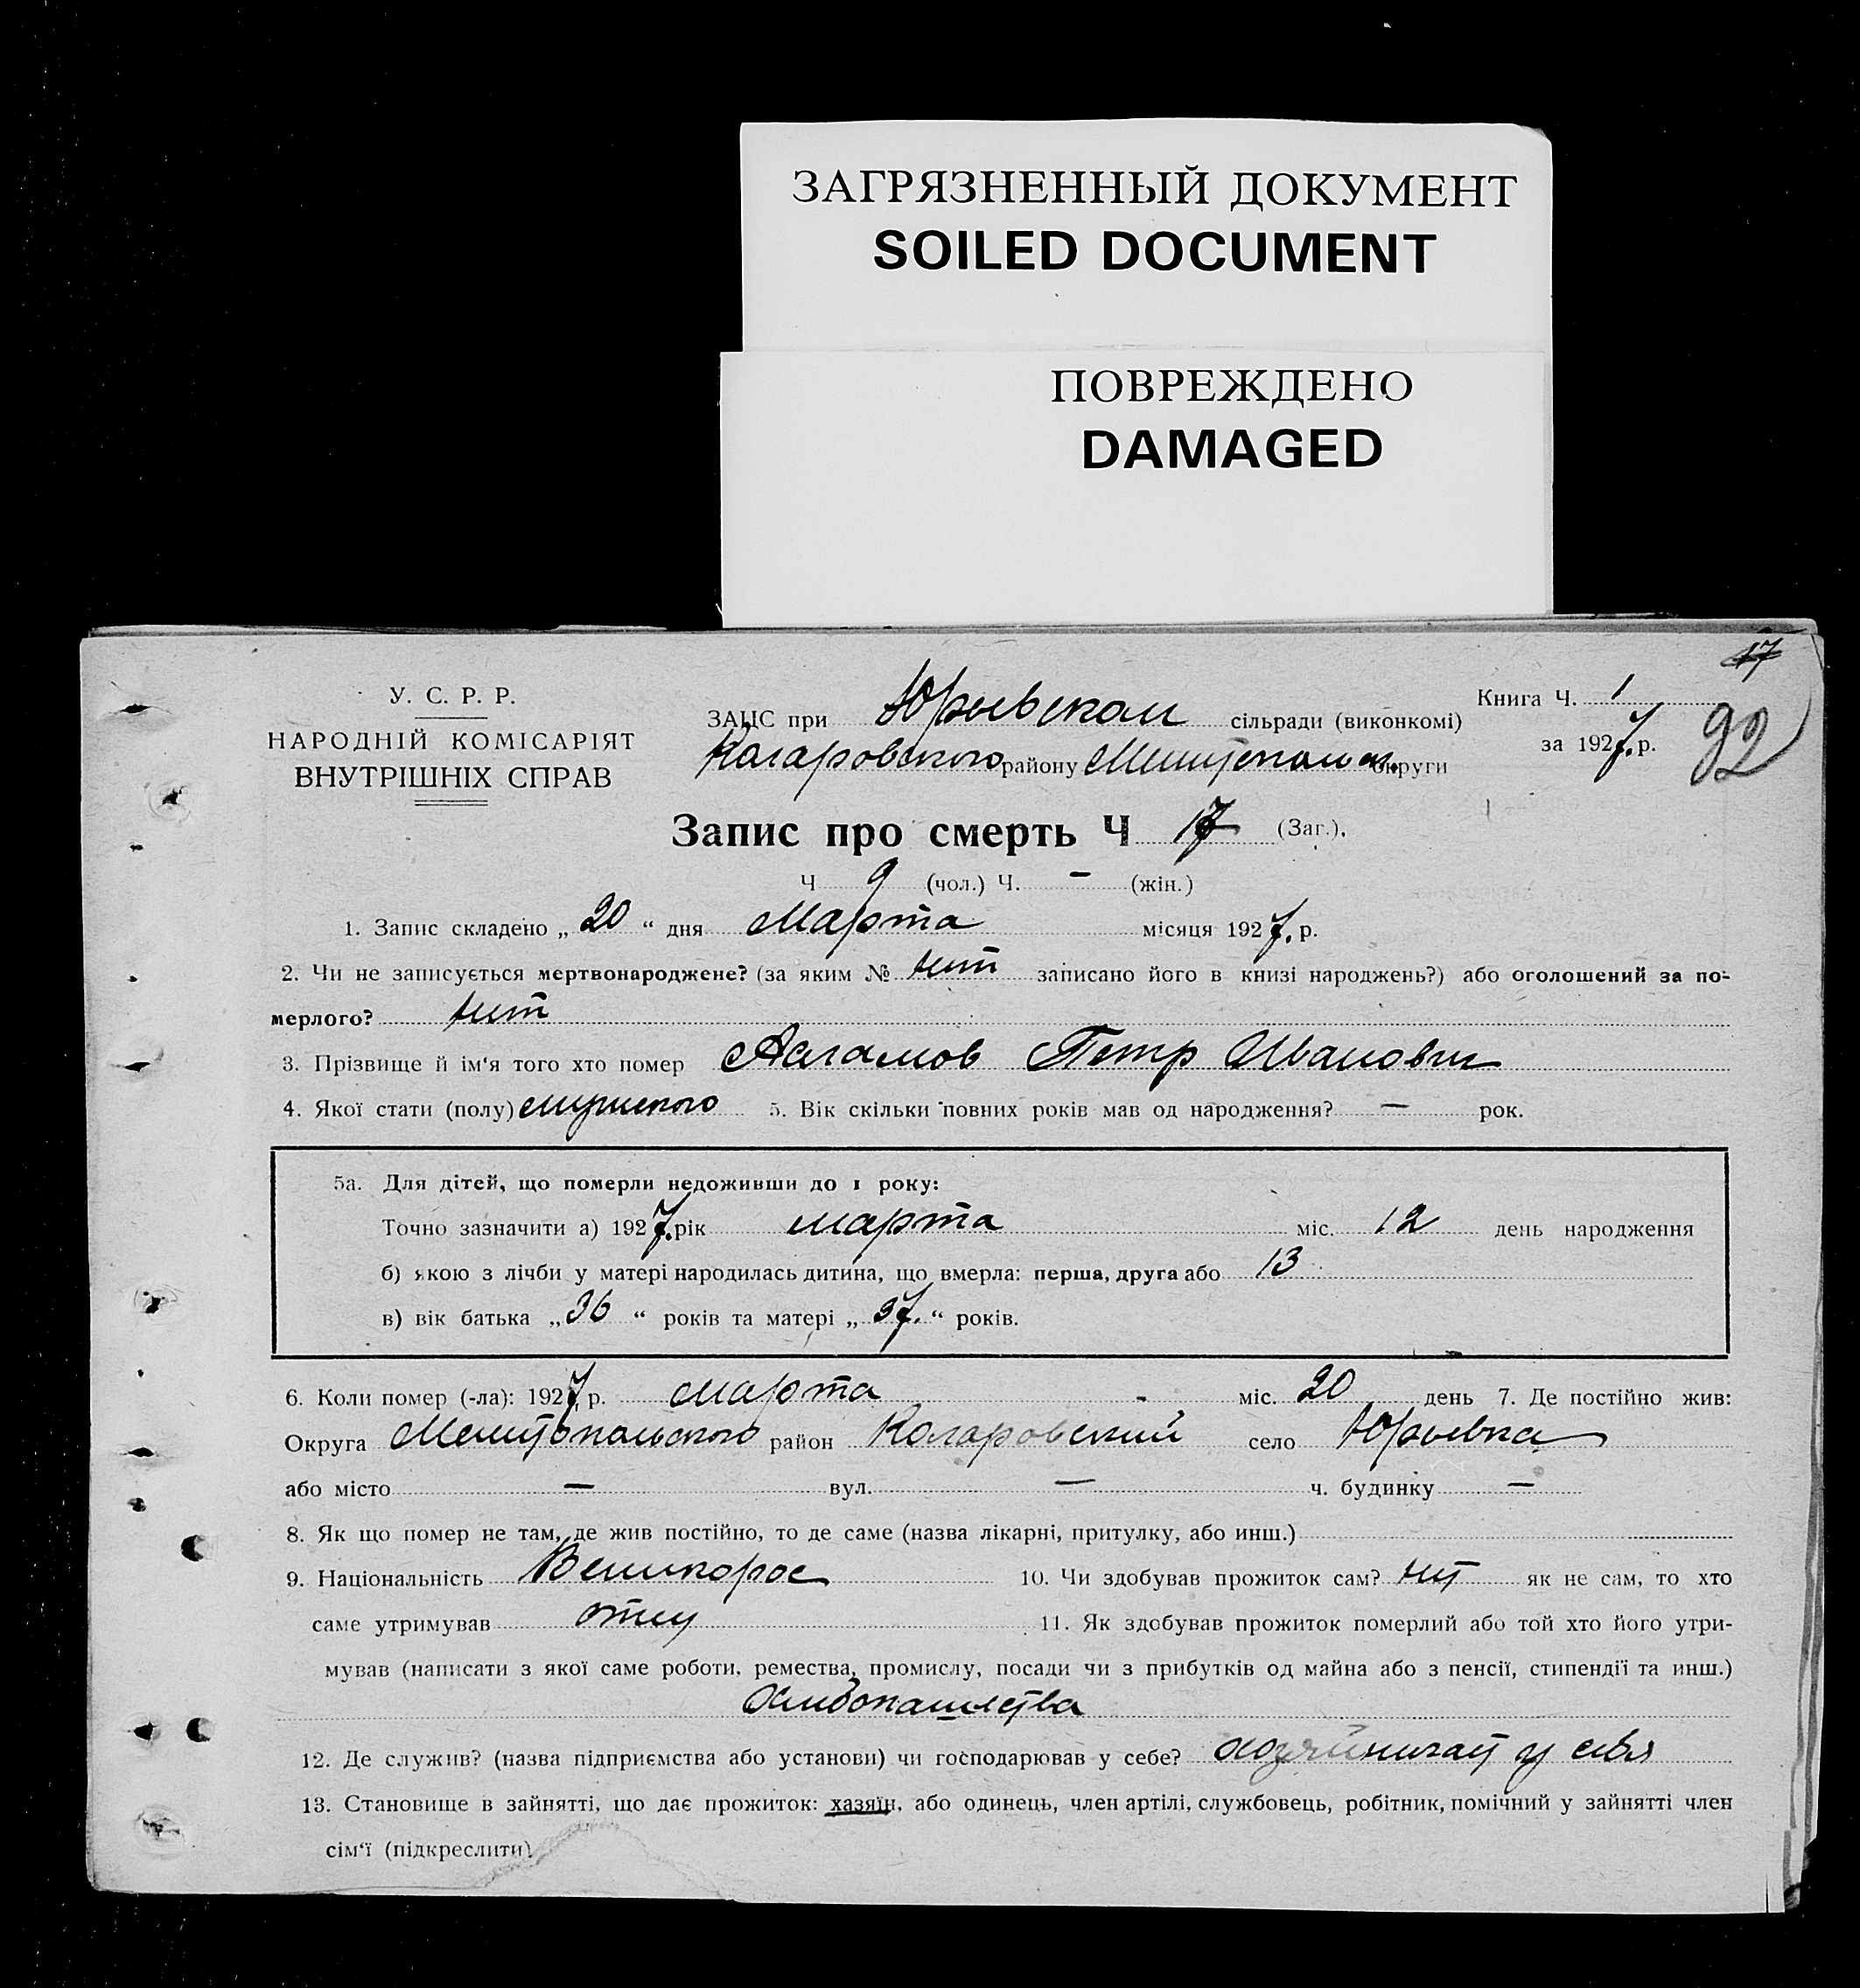 ЗАГРЯЗНЕННЫЙ ДОКУМЕНТ
SOILED DOCUMENT
ПОВРЕЖДЕНО
DAMAGED
17
У. С. Р. Р.
НАРОДНІЙ КОМІСАРІЯТ
ВНУТРІШНІХ СПРАВ
ЗАЦС при Юрьевском сільради (виконкомі)
району округи
Книга Ч. 1
за 1927. р.
92
Запис про смерть Ч 17 (Заг.).
Ч 9 (чол.) Ч. — (жін.)
1. Запис складено „ 20 “ дня Марта місяця 1927. р.
2. Чи не записується мертвонароджене? (за яким № нет записано його в книзі народжень?) або оголошений за по-
мерлого? нет
3. Прізвище й ім‘я того хто помер Петр Иванович
4. Якої стати (полу) мужского 5. Вік скільки повних років мав од народження? — рок.
5а. Для дітей, що померли недоживши до 1 року:
Точно зазначити а) 1927. рік марта міс. 12 день народження
б) якою з лічби у матері народилась дитина, що вмерла: перша, друга або 13
в) вік батька „ 36 “ років та матері „ 37. “ років.
6. Коли помер (-ла): 1927 р. марта міс. 20 день 7. Де постійно жив:
Округа Мелитопольского район Коларовский село Юрьевка
або місто — вул. — ч. будинку —
8. Як що помер не там, де жив постійно, то де саме (назва лікарні, притулку, або инш.)
9. Національність Великорос 10. Чи здобував прожиток сам? нет як не сам, то хто
саме утримував отец 11. Як здобував прожиток померлий або той хто його утри-
мував (написати з якої саме роботи, ремества, промислу, посади чи з прибутків од майна або з пенсії, стипендії та инш.)
12. Де служив? (назва підприємства або установи) чи господарював у себе? хозяйничает у себя
13. Становище в зайнятті, що дає прожиток: хазяїн, або одинець, член артілі, службовець, робітник, помічний у зайнятті член
сім‘ї (підкреслити)